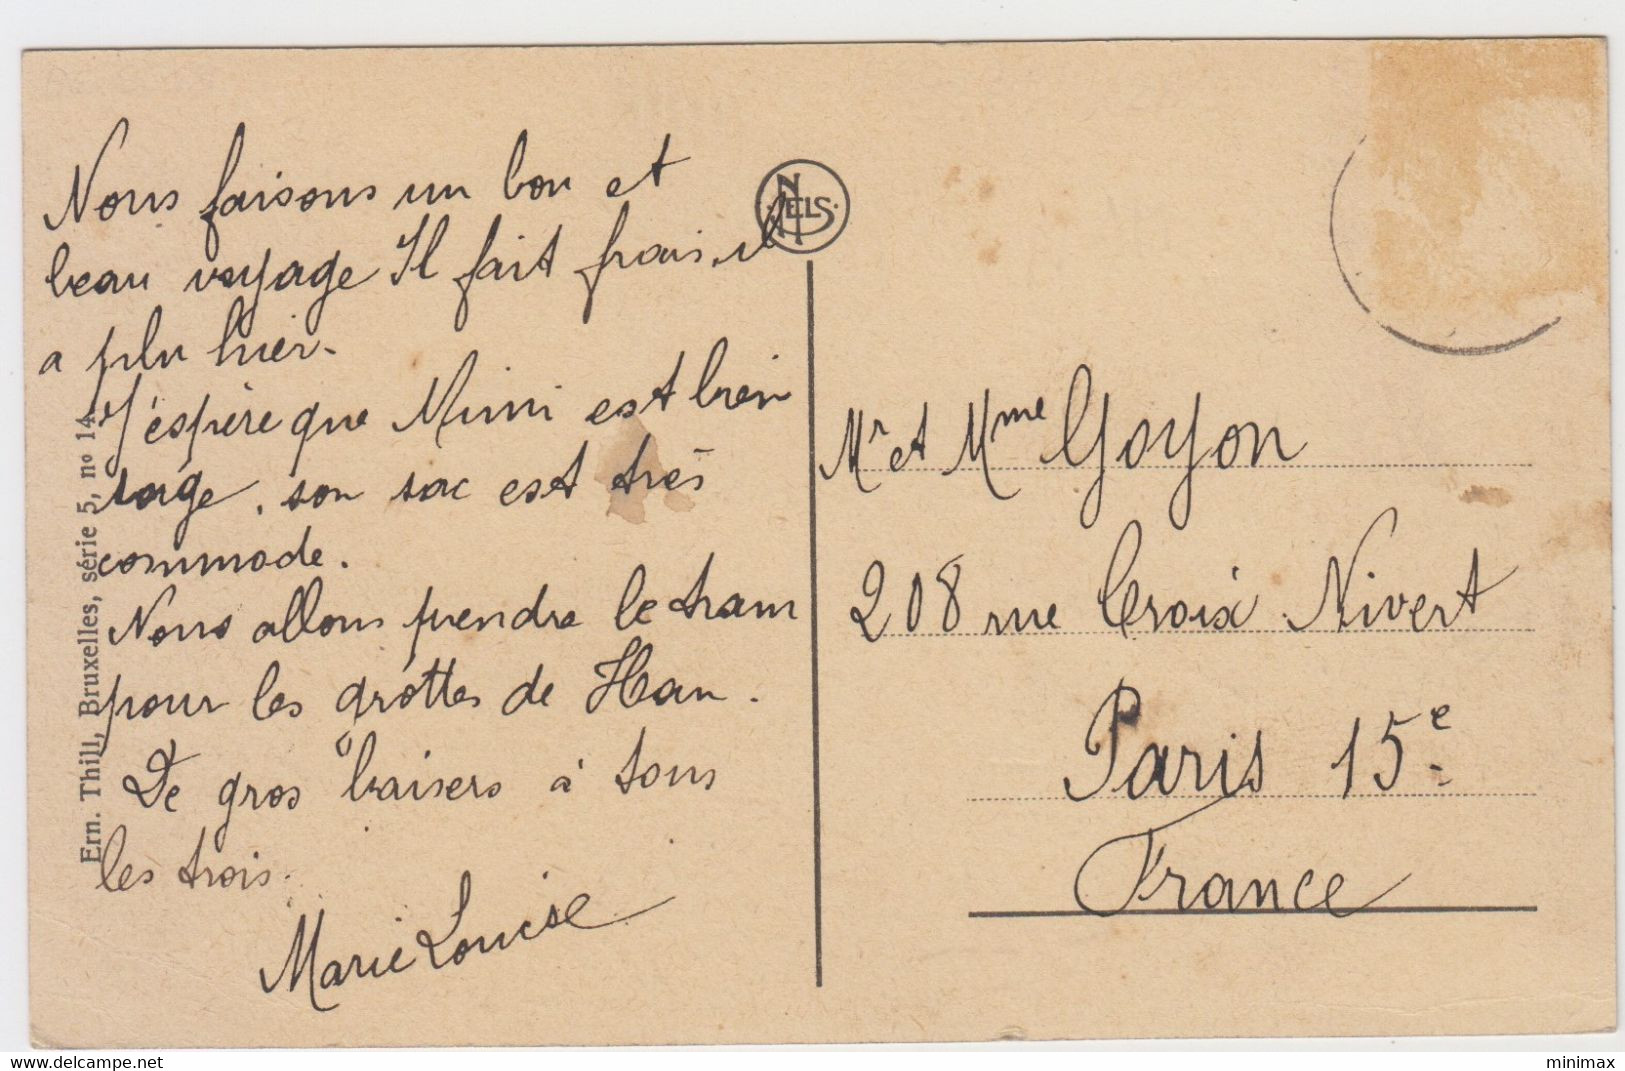 Nous faisons un bon et
beau voyage Il fait frais, il
a plu hier.
J'espère que Mimi est bien
sage, son sac est très
commode.
Nous allons prendre le tram
pour les grottes de Han.
De gros baisers à tous
les trois.
Marie Louise
NELS
Mr et Mme Goyon
208 rue Croix Nivert
Paris 15e
France
Ern. Thill, Bruxelles, série 5, no 14
www.delcampe.net
minimax